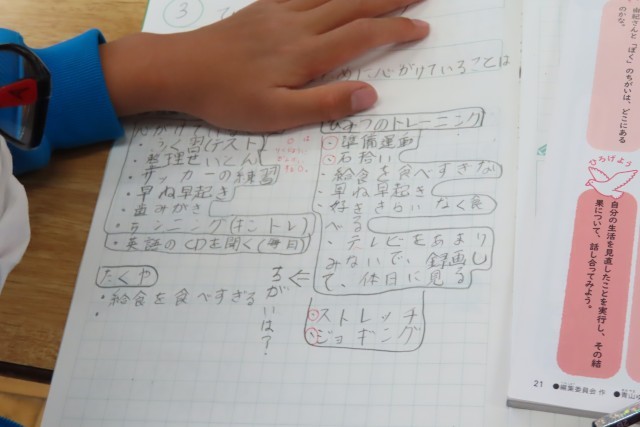 3
めに心がけていることは
・整理せいとん
・サッカーの練習
・早ね早起き
・歯みがき
・ランニング(キントレ)
・英語のCDを聞く(毎日)
たくや
・給食を食べすぎる
・
ちがいは?
ひみつのトレーニング
・準備運動
・石拾い
・給食を食べすぎな
・早ね早起き
・好ききらいなく食
べる
・テレビをあまり
みないで、録画し
て、休日に見る
ストレッチ
ジョギング
由紀さんと「ぼく」のちがいは、どこにある
のかな。
ひろげよう
自分の生活を見直したことを実行し、その結
果について、話し合ってみよう。
21 ●編集委員会 作 ●青山